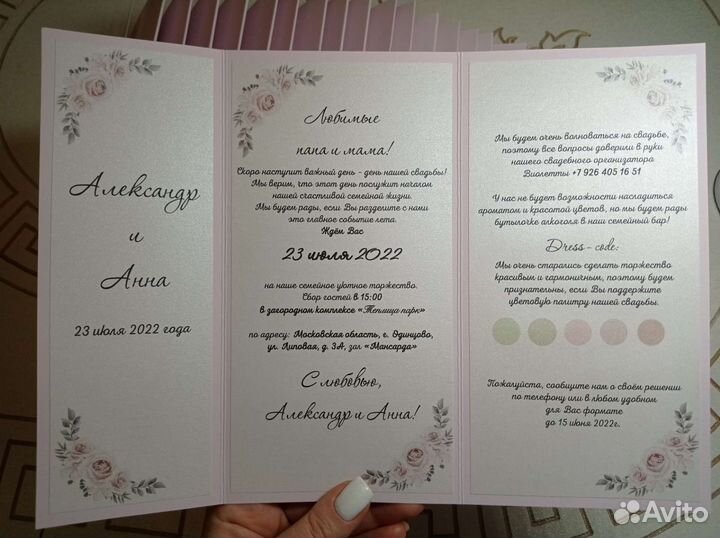 Александр
и
Анна
23 июля 2022 года
Любимые
папа и мама!
Скоро наступит важный день - день нашей свадьбы!
Мы верим, что этот день послужит началом
нашей счастливой семейной жизни.
Мы будем рады, если Вы разделите с нами
это главное событие лета.
Ждём Вас
23 июля 2022
на наше семейное уютное торжество.
Сбор гостей в 15:00
в загородном комплексе «Теплица парк»
по адресу: Московская область, г. Одинцово,
ул. Липовая, д. 3А, зал «Мансарда»
С любовью,
Александр и Анна!
Мы будем очень волноваться на свадьбе,
поэтому все вопросы доверили в руки
нашего свадебного организатора
Виолетты +7 926 405 16 51
У нас не будет возможности насладиться
ароматом и красотой цветов, но мы будем рады
бутылочке алкоголя в наш семейный бар!
Dress - code:
Мы очень старались сделать торжество
красивым и гармоничным, поэтому будем
признательны, если Вы поддержите
цветовую палитру нашей свадьбы.
Пожалуйста, сообщите нам о своём решении
по телефону или в любом удобном
для Вас формате
до 15 июня 2022г.
Avito